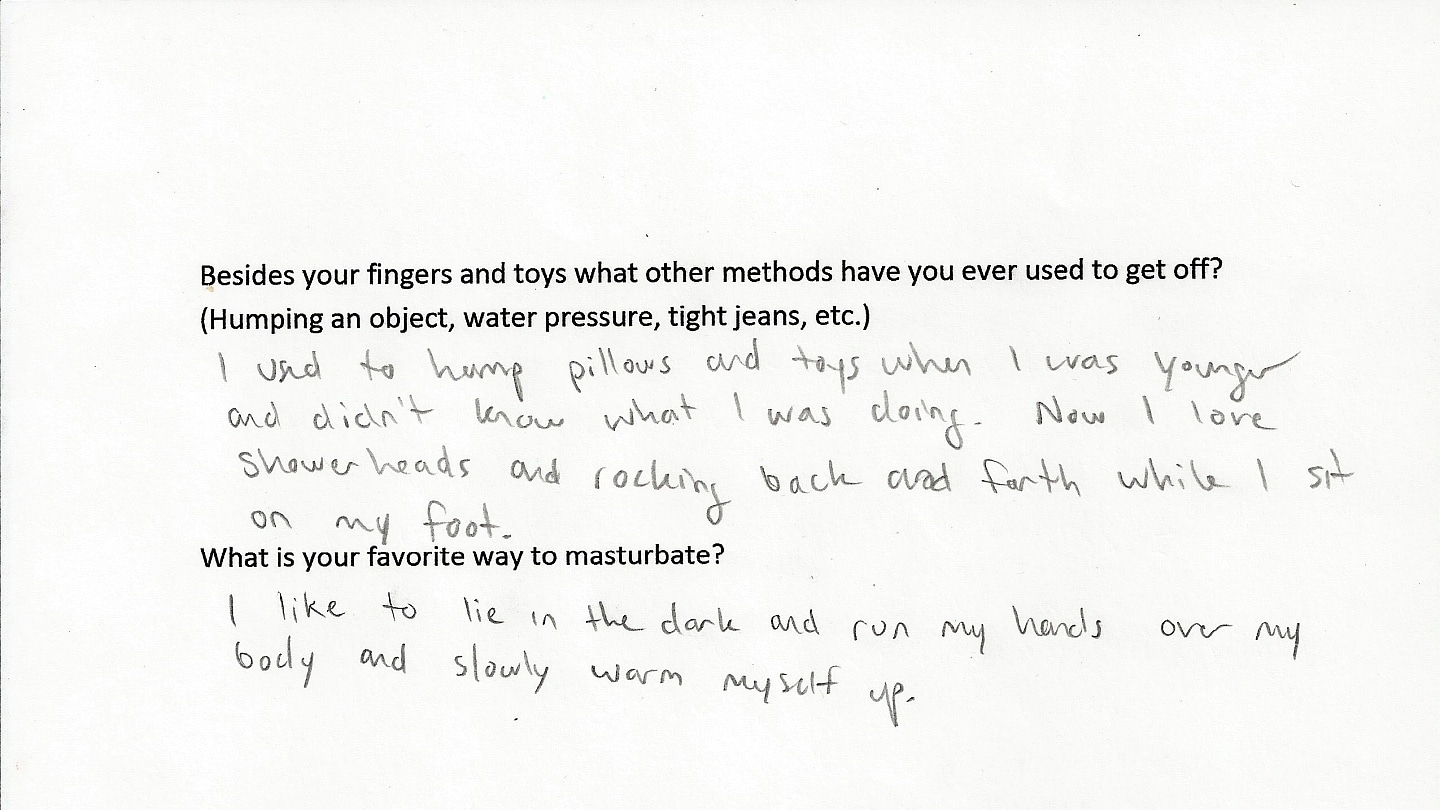 Besides your fingers and toys what other methods have you ever used to get off?
(Humping an object, water pressure, tight jeans, etc.)
I used to hump pillows and toys when I was younger
and didn't know what I was doing. Now I love
showerheads and rocking back and forth while I sit
on my foot.
What is your favorite way to masturbate?
I like to lie in the dark and run my hands over my
body and slowly warm myself up.